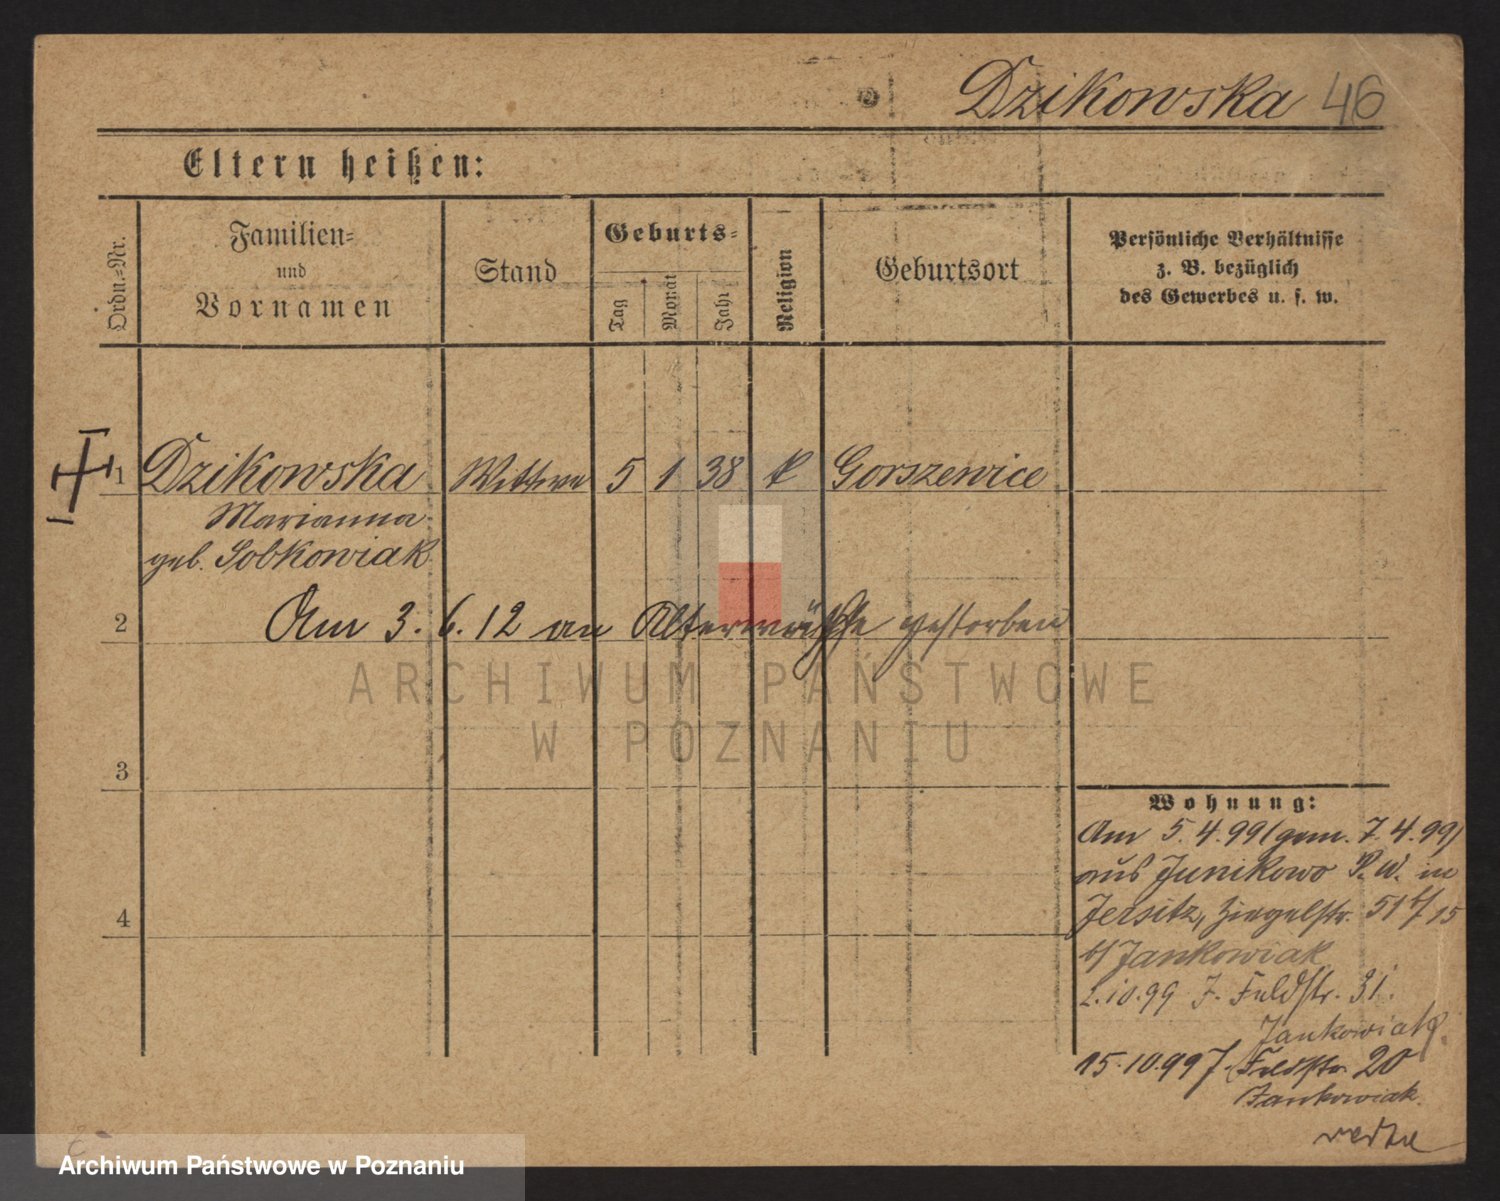 Dzikowska 46
Eltern heißen:
Ordn.=Nr.
Familien=
und
Vornamen
Stand
Geburts=
Tag
Monat
Jahr
Religion
Geburtsort
Persönliche Verhältnisse
z. B. bezüglich
des Gewerbes u. s. w.
1 Dzikowska Wittwe 5 1 38 k Gorszewice
Marianna
geb. Sobkowiak
2 Am 3. 6. 12 an Altersschwäche gestorben
ARCHIWUM PAŃSTWOWE
W POZNANIU
3
Wohnung:
Am 5. 4. 99 (gem. 7. 4. 99)
aus Junikowo P. W. in
Jersitz, Ziegelstr. 51 b/15
4
b/ Jankowiak
2.10.99 J. Feldstr. 31.
Jankowiak.
15.10.99 J. Feldstr. 20
Jankowiak.
Archiwum Państwowe w Poznaniu